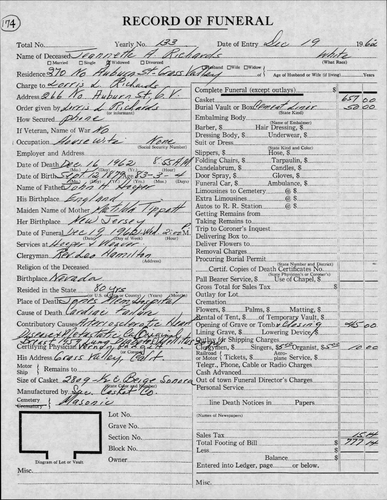 174
RECORD OF FUNERAL
Total No. Yearly No. 133 Date of Entry Dec 19 1962
Name of Deceased Jeannette A. Richards White
Married Single Widowed Divorced Husband Wife Widow (What Race)
Residence 270 No Auburn St. Grass Valley Age of Husband or Wife (if living) Years
Charge to Lorris L. Richards
Address 266 No. Auburn St., G. V.
Order given by Lorris L. Richards
How Secured phone
If Veteran, Name of War No
Occupation Housewife None
(Social Security Number)
Employer and Address
Date of Death Dec 16, 1962 8:55 A.M.
Date of Birth Sept 12, 1879 83-3-4
Name of Father John H.
His Birthplace England
Maiden Name of Mother Matilda
Her Birthplace New Jersey
Date of Funeral Dec 19, 1962 Wed 2:00 P.
Services at Hooper & Weaver
Clergyman Rev Leo Hamilton
Religion of the Deceased
Birthplace Nevada
Resident in the State 80 yrs
Place of Death
Cause of Death Cardiac Failure
Contributory Causes Arteriosclerotic Heart
Certifying Physician Vernon
His Address Grass Valley, Calif
Motor
Ship Remains to
Size of Casket Beige Sonora
Manufactured by Sac. Casket Co.
Cemetery
Crematory Masonic
Lot No.
Grave No.
Section No.
Block No.
Owner
Diagram of Lot or Vault
Misc.
Complete Funeral (except outlays) $
Casket 657 00
Burial Vault or Box Cement Liner 50 00
(State Kind)
Embalming Body
(Name of Embalmer)
Barber, $ Hair Dressing, $
Dressing Body, $ Underwear, $
Suit or Dress
(State Kind and Color)
Slippers, $ Hose, $
Folding Chairs, $ Tarpaulin, $
Candelabrum, $ Candles, $
Door Spray, $ Gloves, $
Funeral Car, $ Ambulance, $
Limousines to Cemetery @ $
Extra Limousines @ $
Autos to R. R. Station @ $
Getting Remains
Taking Remains to
Trip to Coroner's Inquest
Delivering Box to
Deliver Flowers to
Removal Charges
Procuring Burial Permit
(State Number and District)
Certif. Copies of Death Certificates No.
Pall Bearer Service, $ Use of Chapel, $
Gross Total for Sales Tax $
Outlay for Lot
Cremation
Flowers, $ Palms, $ Matting, $
Rental of Tent, $ of Temporary Vault, $
Opening of Grave or Tomb & Closing 45 00
Lining Grave, $ Lowering Device, $
Outlay for Shipping Charges
Clergymen, $ Singers, $5.00 Organist, $5.00 10 00
Railroad
or Auto-
Motor Tickets, $ plane Service, $
Telegr., Phone, Cable or Radio Charges
Cash Advanced
Out of town Funeral Director's Charges
Personal Service
line Death Notices in Papers
(Names of Newspapers)
Sales Tax 15 14
Total Footing of Bill 777 14
Less
Balance
Entered into Ledger, page below.
Misc.